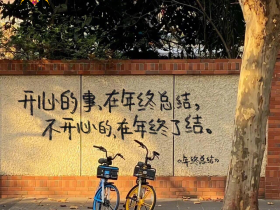 开心的事,在年终总结,
不开心的,在年终了结。
《年终总结》